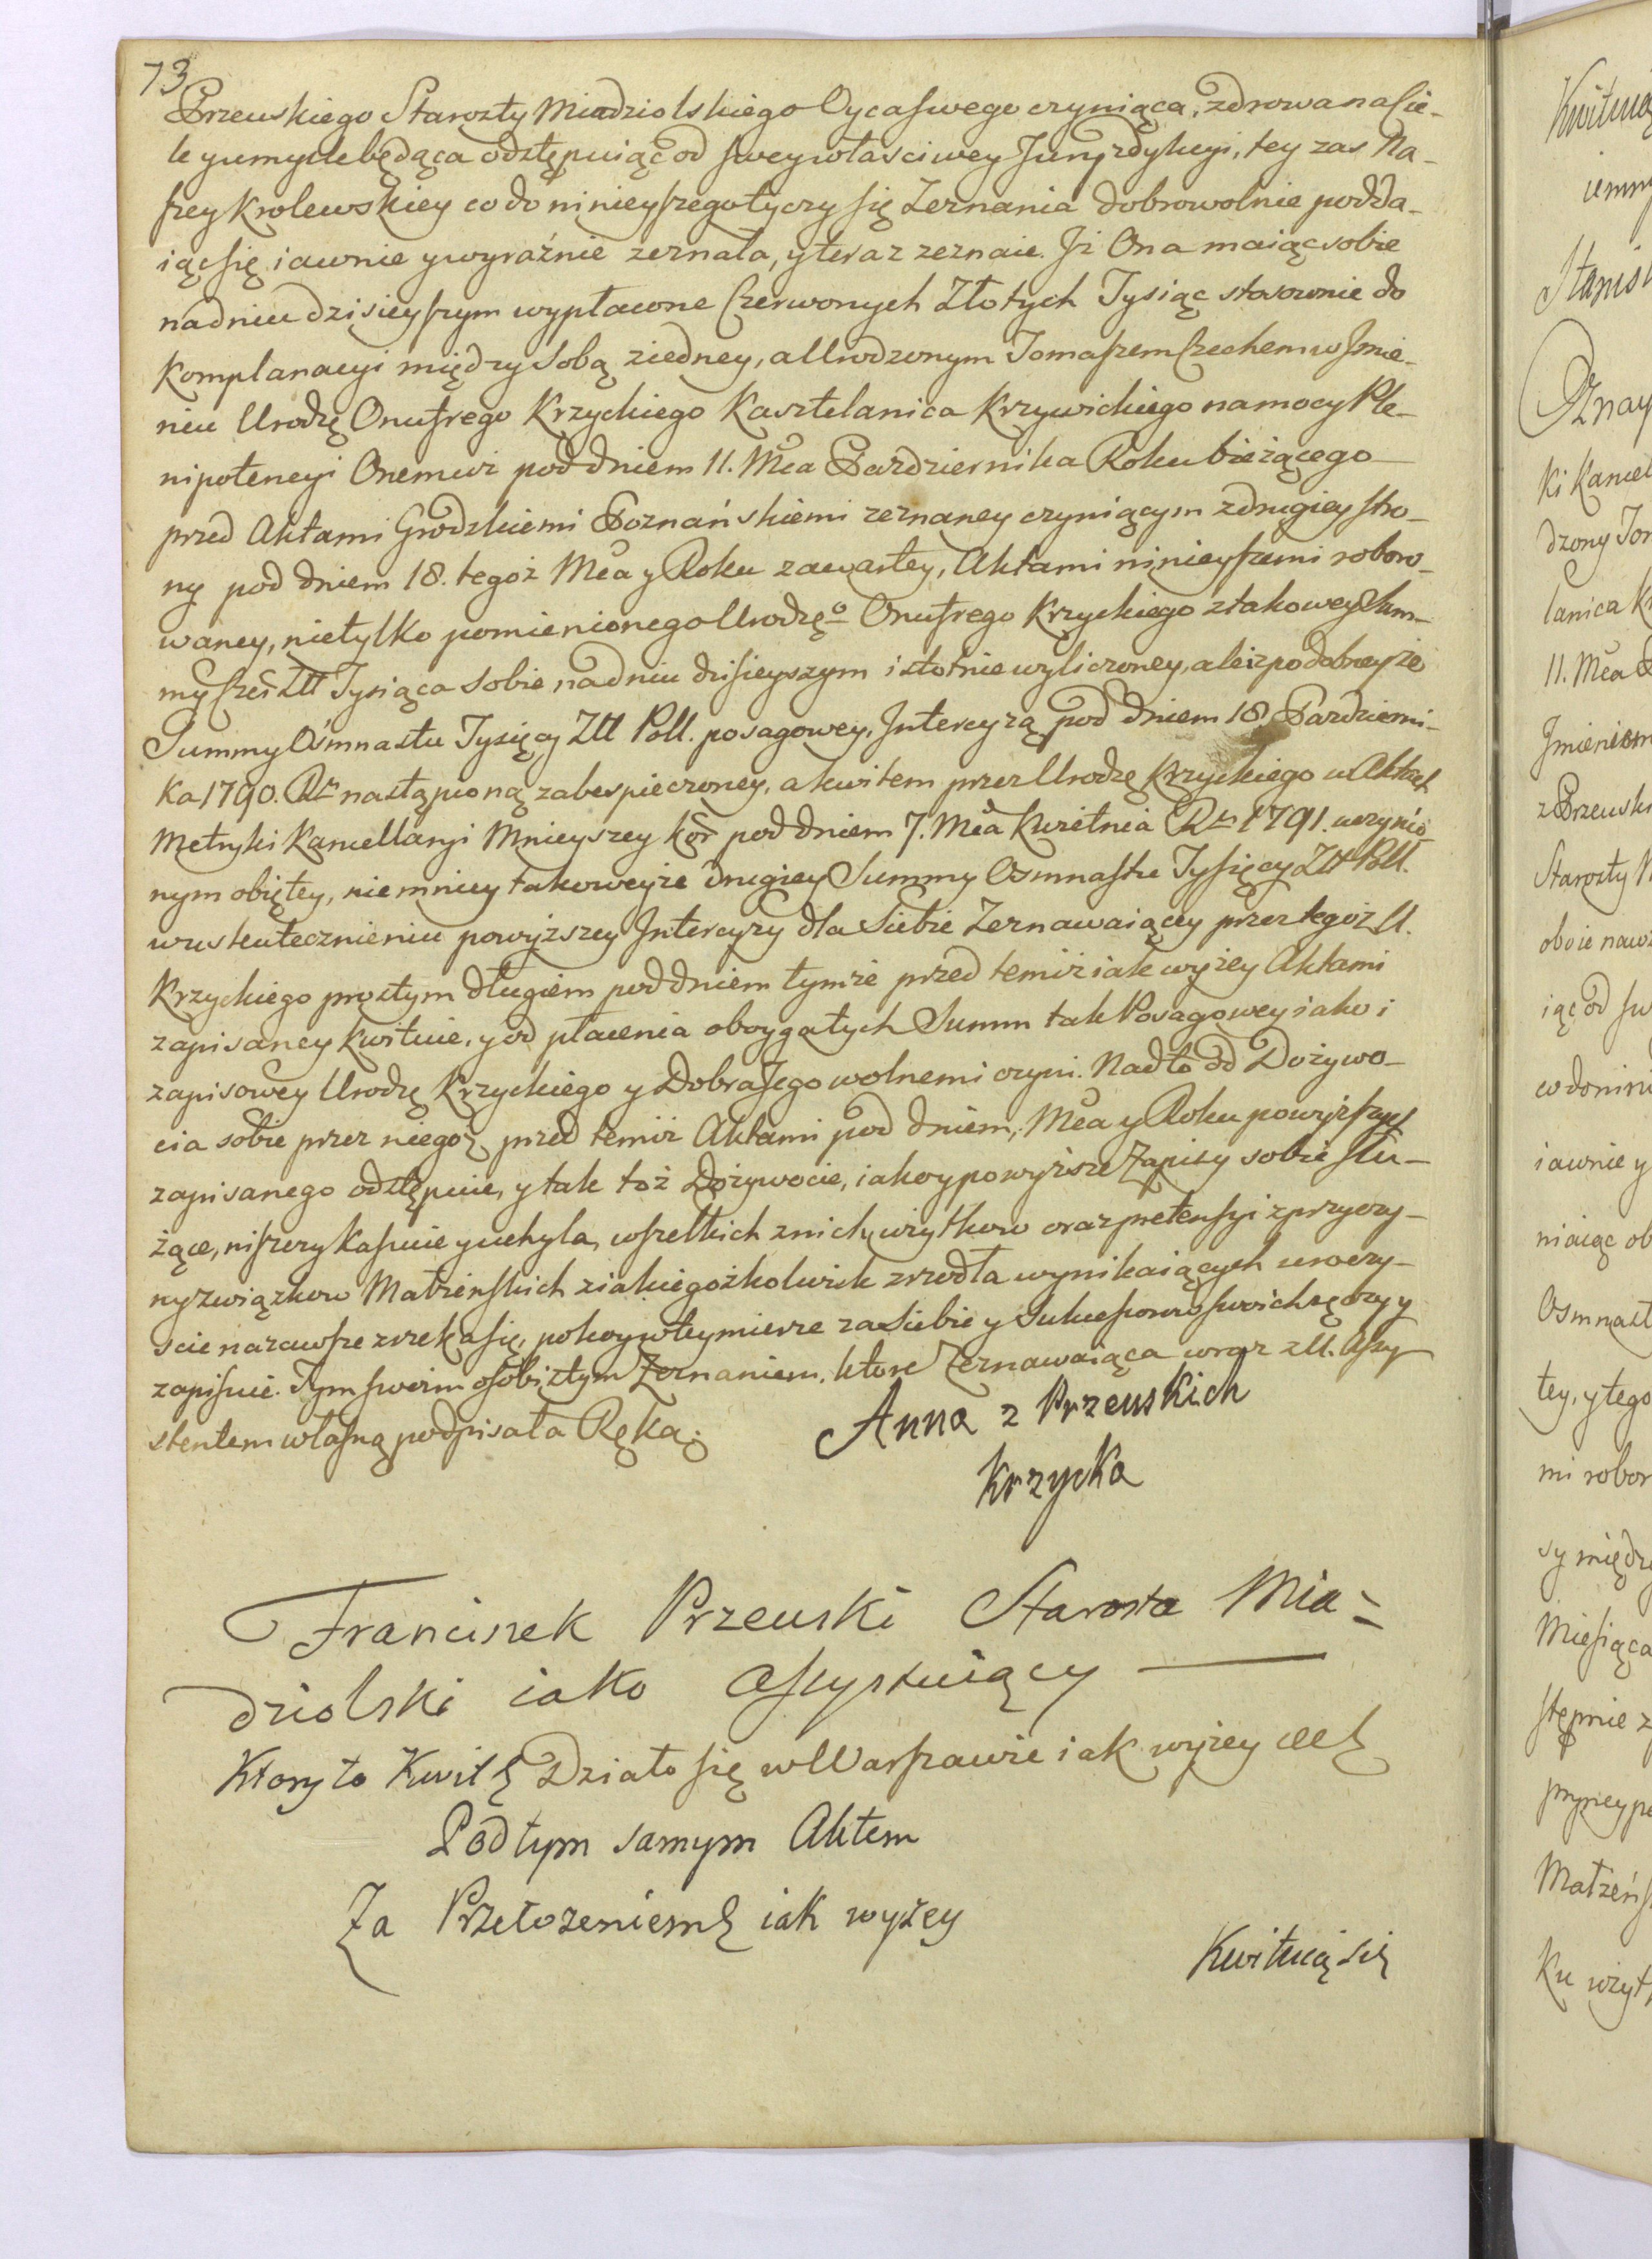 73
Przeuskiego Starosty Miadziolskiego Oyca swego czyniąca, zdrowa na Cie-
le y umyśle będąca odstępuiąc od swey właściwey Juryzdykcyi, tey zas Na-
szey Krolewskiey co do ninieyszego tyczy się Zeznania dobrowolnie podda-
iąc się, iawnie y wyraźnie zeznała, y teraz zeznaie. Jż Ona maiąc sobie
na dniu dzisieyszym wypłacone Czerwonych Złotych Tysiąc stosownie do
Komplanacyi między Sobą ziedney, a Urodzonym Tomaszem Czechem w Jmie-
niu Urodzę Onufrego Krzyckiego Kasztelanica Krzywickiego na mocy Ple-
nipotencyi Onemuż pod dniem 11. Mca Pazdziernika Roku bieżącego
przed Aktami Grodzkiemi Poznańskiemi zeznaney czyniącym z drugiey stro-
ny pod dniem 18. tegoż Mca y Roku zawartey, Aktami ninieyszemi roboro-
waney, nietylko pomienionego Urodzęo Onufrego Krzyckiego z takowey Sum-
my Czer Złł Tysiąca Sobie, na dniu dzisieyszym istotnie wyliczoney, ale iz podobneyże
Summy Osmnastu Tysięcy Złł Poll. posagowey, Jntercyzą pod dniem 18. Pazdzierni-
ka 1790. Rku nastąpioną zabespieczoney, a kwitem przez Urodzę Krzyckiego w Aktach
Metryki Kancellaryi Mnieyszey Kor pod dniem 7. Mca Kwietnia Rku 1791. uczynio-
nym obiętey, niemniey takoweyże drugiey Summy Osmnastu Tysięcy Złł Poll.
w uskutecznieniu powyższey Jntercyzy dla Siebie Zeznawaiącey przez tegoż U.
Krzyckiego prostym długiem pod dniem tymże przed temiż iak wyżey Aktami
zapisaney kwituie, y od płacenia oboygatych Summ tak Posagowey iako i
zapisowey Urodzę Krzyckiego y Dobra Jego wolnemi czyni. Nadto od Dożywo-
cia sobie przez niegoż przed temiż Aktami pod dniem, Mca y Roku powyższych
zapisanego odstępuie, y tak toż Dożywocie, iako y powyższe Zapisy sobie słu-
żące, niszczy kassuie y uchyla, wszelkich z nich użytkow oraz pretensyi z przyczy-
ny związkow Małżeńskich z iakiegożkolwiek zrzodła wynikaiących uroczy-
scie na zawsze zrzeka się, pokoy w tey mierze za Siebie y Sukcessorow swoich ręczy y
zapisuie. Tym swoim osobistym Zeznaniem, ktore Zeznawaiąca wraz z U. Assy-
stentem własną podpisała Ręką.
Anna z Przeuskich
Krzycka
Franciszek Przeuski Starosta Mia=
dziolski iako Assystuiący
Ktory to Kwit Działo się w Warszawie iak wyżey
Pod tym samym Aktem
Za Przełożeniem iak wyżey
Kwituią się